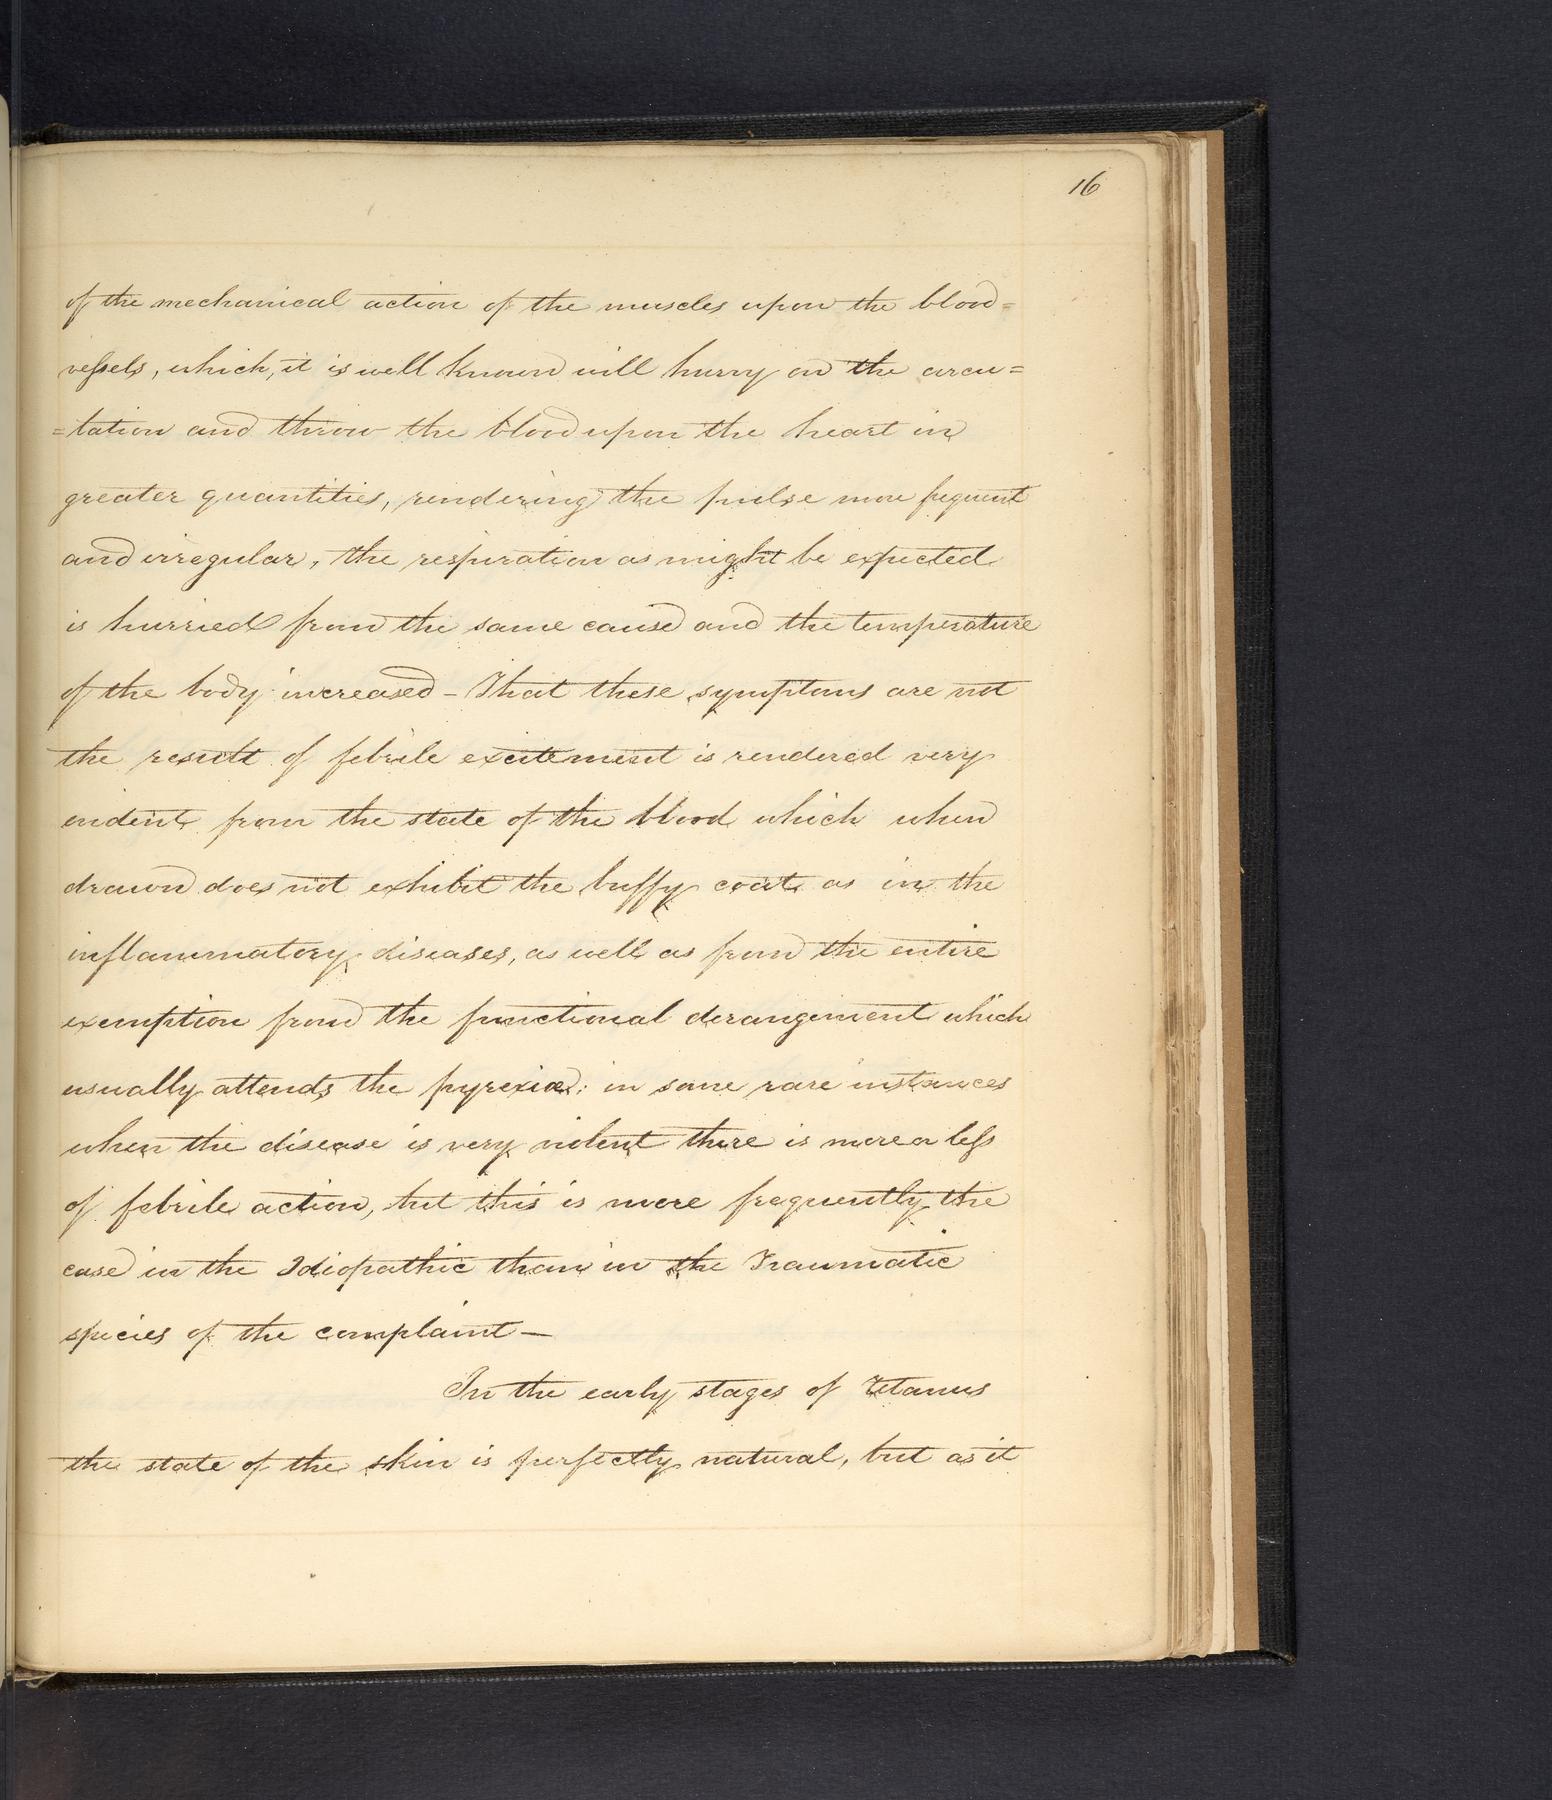 16
of the mechanical action of the muscles upon the blood=
vessels, which, it is well known will hurry on the circu=
=tation and throw the blood upon the heart in
greater quantities, rendering the pulse more frequent
and irregular, the respiration as might be expected
is hurried from the same cause and the temperature
of the body increased - That these symptoms are not
the result of febrile excitement is rendered very
evident from the state of the blood which when
drawn does not exhibit the buffy coat as in the
inflammatory diseases, as well as from the entire
exemption from the functional derangement which
usually attends the pyrexiæ; in some rare instances
when the disease is very violent there is more or less
of febrile action, but this is more frequently the
case in the Idiopathic than in the Traumatic
species of the complaint —
In the early stages of Tetanus
the state of the skin is perfectly natural, but as it